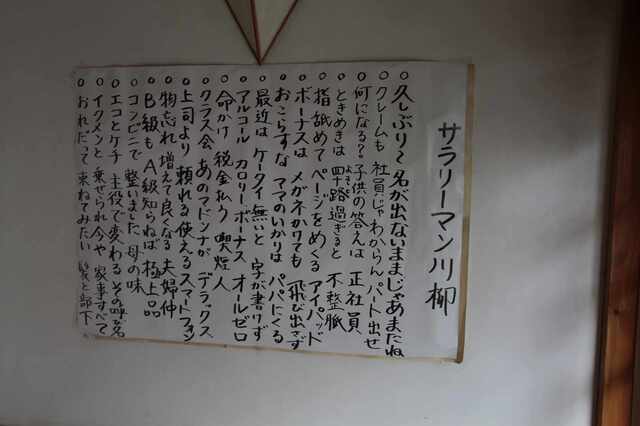 サラリーマン川柳
○久しぶり〜名が出ないままじゃあまたね
○クレームも 社員じゃわからんパート出せ
○何になる?子供の答えは 正社員
○ときめきは 四十路過ぎると 不整脈
よそじ
○指舐めて ページをめくる アイパッド
○ボーナスは メガネかけても 飛び出さず
○おこらすな ママのいかりは パパにくる
○最近は ケータイ無いと 字が書けず
○アルコール カロリーボーナス オールゼロ
○命かけ 税金払う 喫煙人
○クラス会 あのマドンナが デラックス
○上司より 頼れる使える スマートフォン
○物忘れ 増えて良くなる 夫婦仲
○B級も A級知らねば 極上品
○コンビニで 整いました 母の味
○エコとケチ 主役で変わる その呼名
○イクメンと 乗せられ今や 家事すべて
○おれだって 束ねてみたい 髪と部下